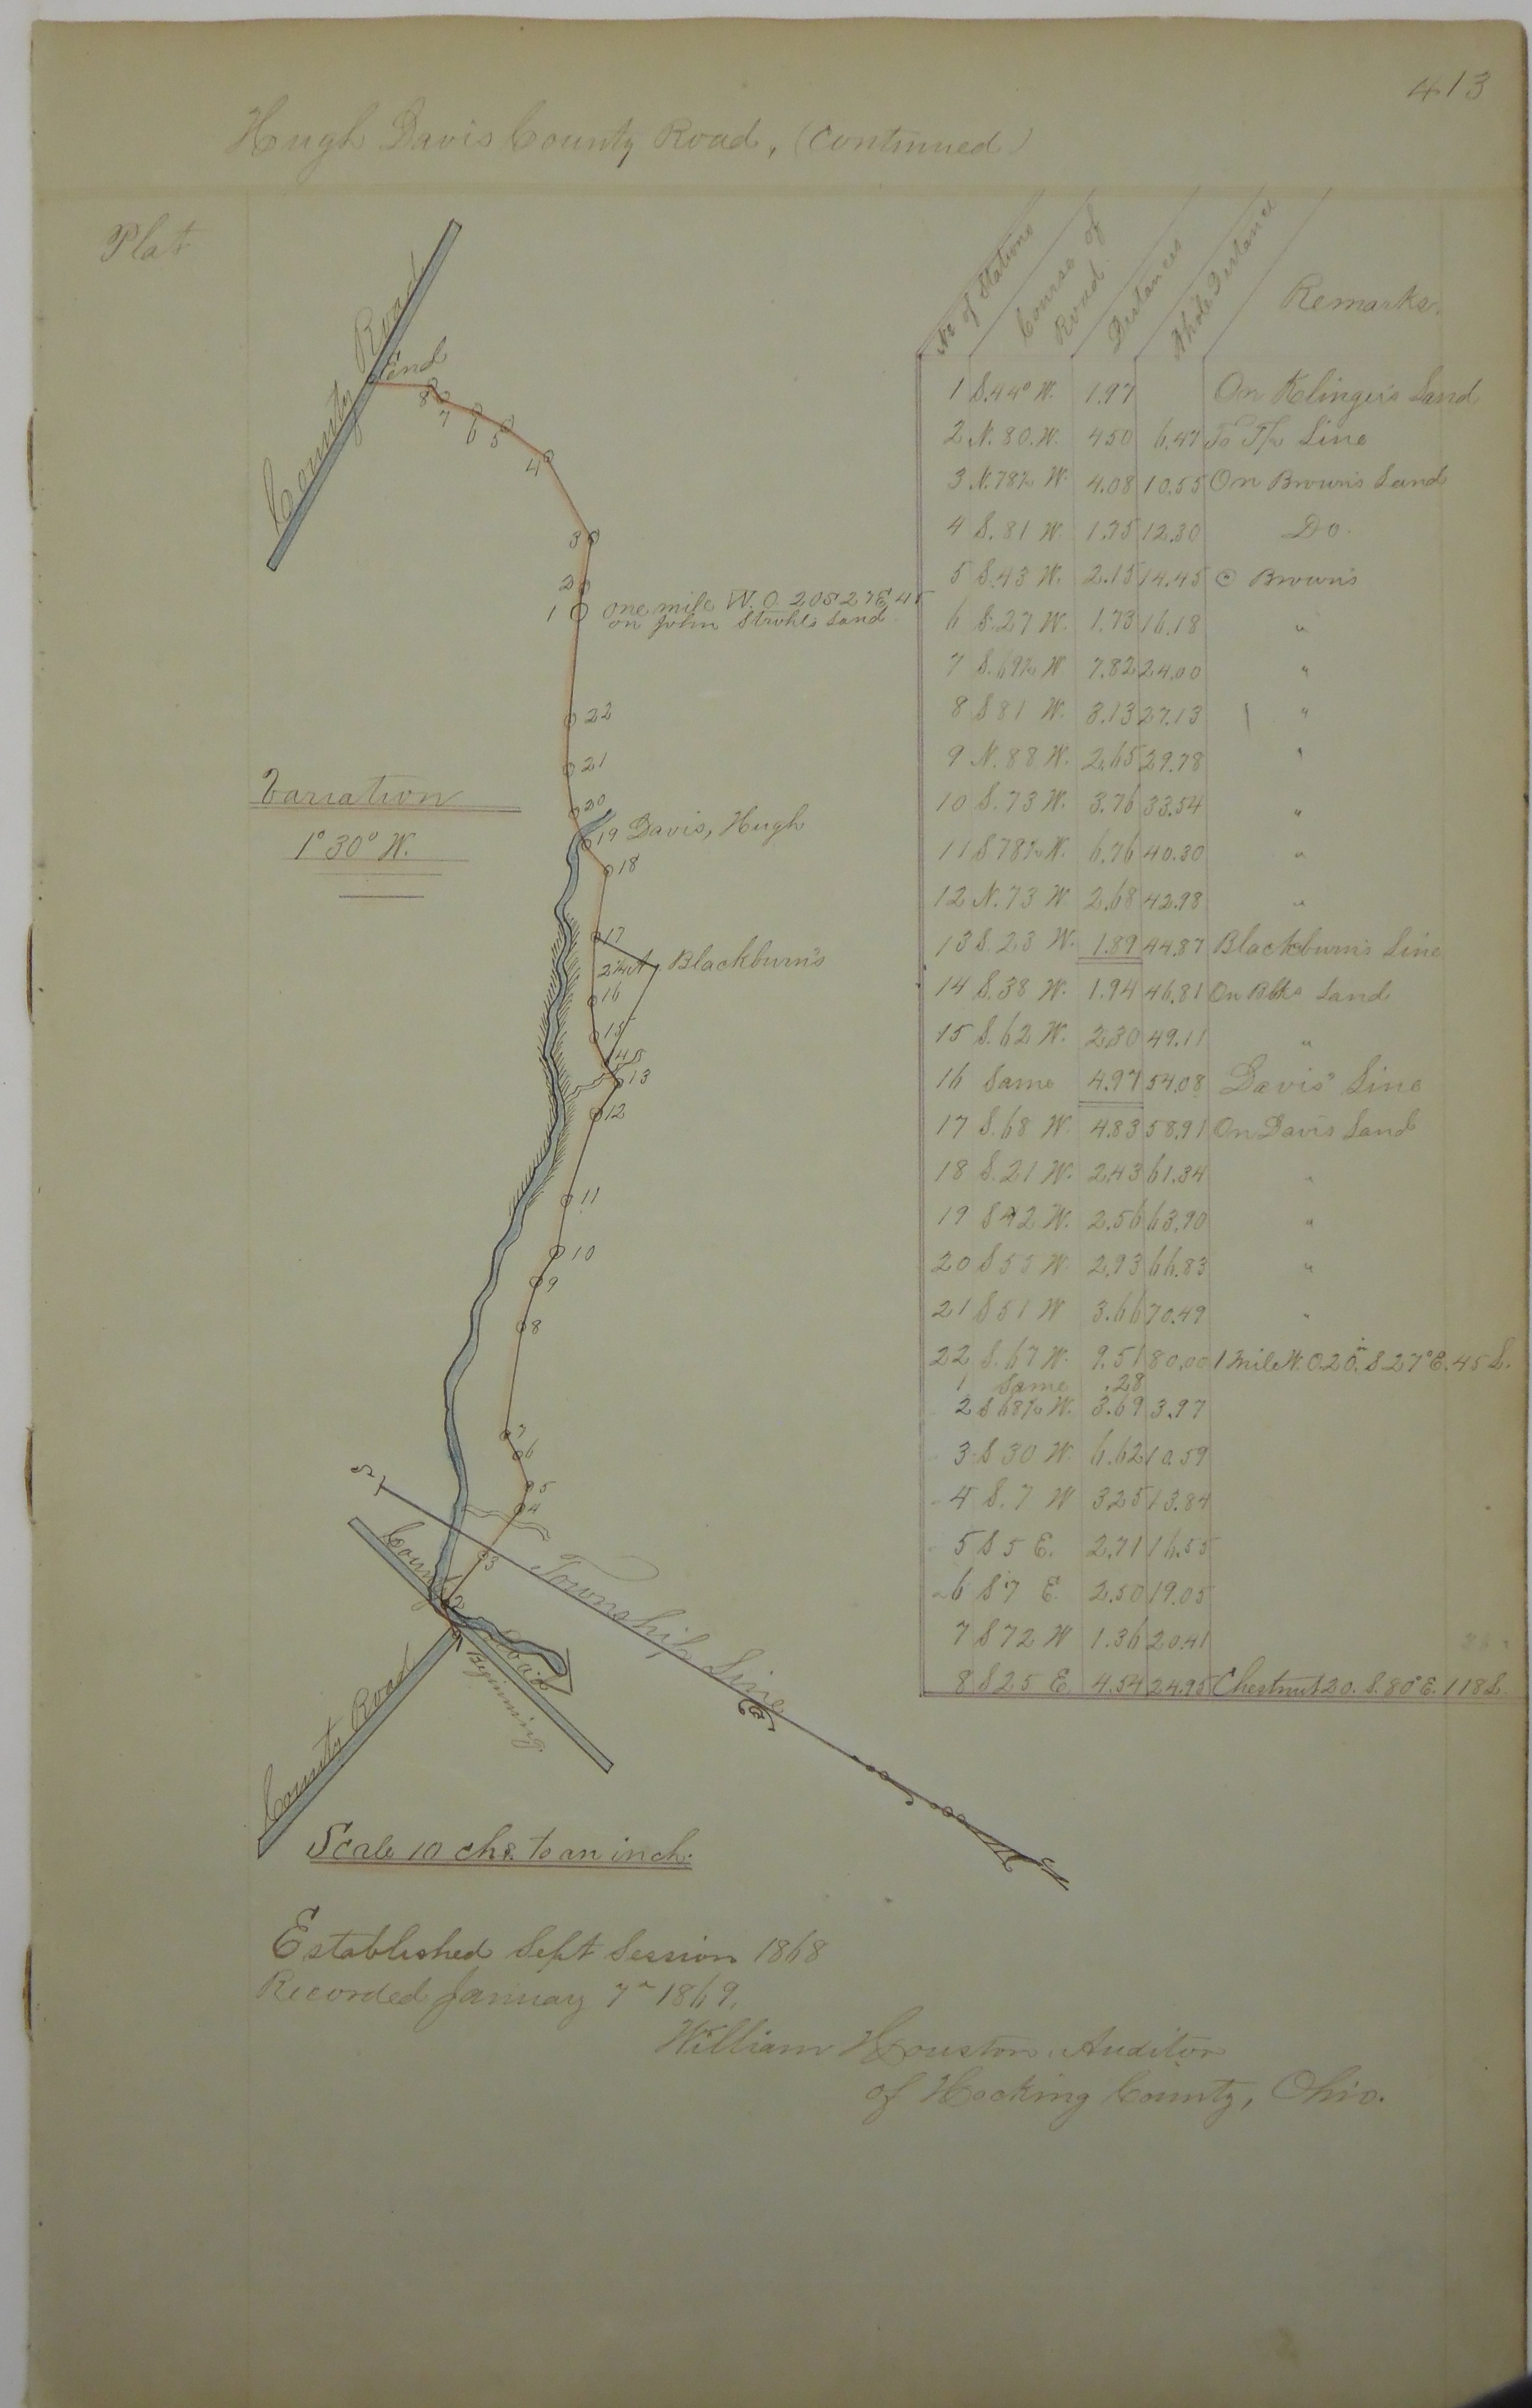 413
Hugh Davis County Road, (Continued)
Plat
County Road
End
8
7
6
5
4
3
2
1 one mile W. O. 20 S 27 E, 45
on John Strohl's Land
22
21
20
19 Davis, Hugh
18
17
Blackburn's
16
15
14
13
12
11
10
9
8
7
6
5
4
3
2
1
Variation
1° 30° W.
S
County Road
Beginning
Township Line
County Road
N
Scale 10 chs. to an inch.
No of Stations Course of Road Distances Whole Distance Remarks.
1 S. 44° W. 1.97 On Klinger's Land
2 N. 80. W. 4.50 6.47 To T/p Line
3 N. 78½ W. 4.08 10.55 On Brown's Land
4 S. 81 W. 1.75 12.30 Do.
5 S. 43 W. 2.15 14.45 Brown's
6 S. 27 W. 1.73 16.18 "
7 S. 69½ W 7.82 24.00 "
8 S 81 W. 3.13 27.13 "
9 N. 88 W. 2.65 29.78 "
10 S. 73 W. 3.76 33.54 "
11 S 78½ W. 6.76 40.30 "
12 N. 73 W 2.68 42.98 "
13 S. 23 W. 1.89 44.87 Blackburn's Line
14 S. 38 W. 1.94 46.81 On Blk's Land
15 S. 62 W. 2.30 49.11 "
16 Same 4.97 54.08 Davis' Line
17 S. 68 W. 4.83 58.91 On Davis Land
18 S. 21 W. 2.43 61.34 "
19 S 42 W. 2.56 63.90 "
20 S 55 W. 2.93 66.83 "
21 S 51 W 3.66 70.49 "
22 S. 67 W. 9.51 80.00 1 mile W. O. 20. S 27° E. 45 L.
1 Same .28
2 S 68½ W. 3.69 3.97
3 S 30 W. 6.62 10.59
4 S. 7 W 3.25 13.84
5 S 5 E. 2.71 16.55
6 S 7 E. 2.50 19.05
7 S 72 W 1.36 20.41
8 S 25 E 4.54 24.95 Chestnut 20. S. 80° E. 118 L.
Established Sept Session 1868
Recorded January 7" 1869.
William Houston, Auditor
of Hocking County, Ohio.